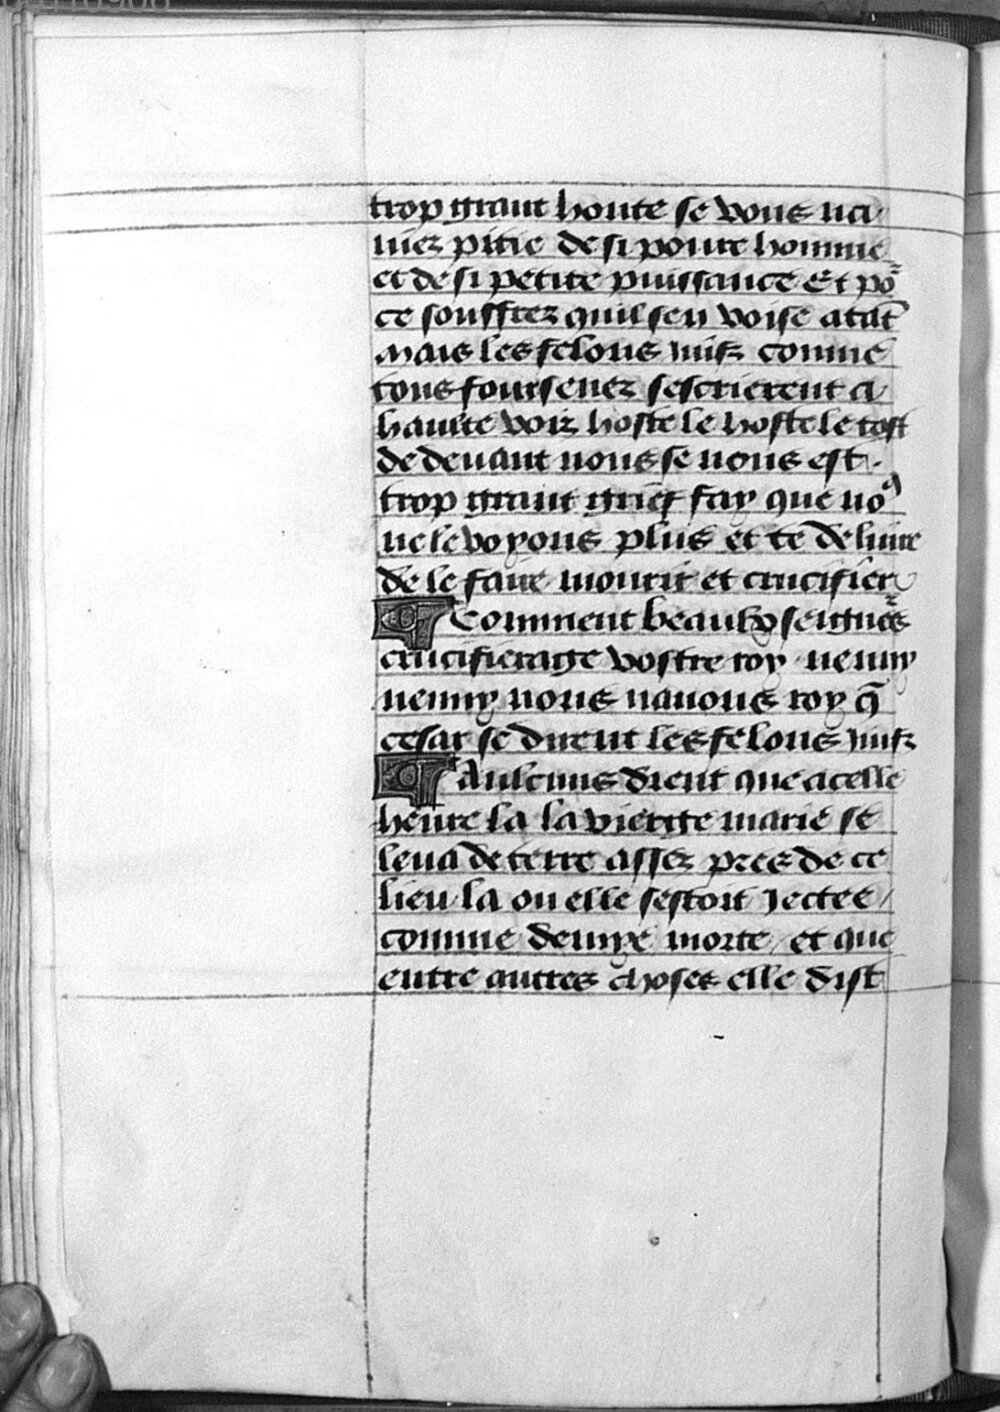 trop grant honte se vous na
uiez pitie de si poure homme
et de si petite puissance Et po᷑
ce souffrez quil sen voise a tat̃
Mais les felons iuifz comme
tous foursenez sescrierent a
haulte voix hoste le hoste le tost
de deuant nous se nous est
trop grant grief fay que noꝰ
ne le voyons plus et te deliure
de le faire mourir et crucifier
¶ Comment beaulx seignc̃s
crucifieraige vostre roy nenny
nenny nous nauons roy q̃
cesar se dirent les felons iuifz
¶ Aulcuns dient que a celle
heure la la vierge marie se
leua de terre assez pres de ce
lieu la ou elle sestoit Jectee /
comme demye morte / et que
entre autres choses elle dist